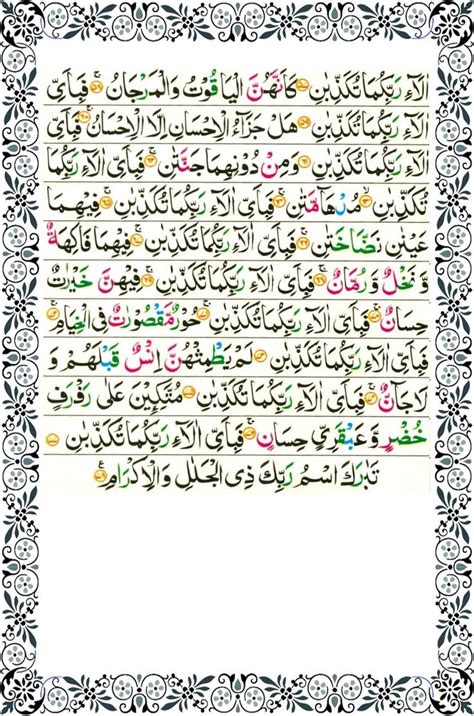 اٰلَآءِ رَبِّكُمَا تُكَذِّبٰنِ ۚ كَاَنَّهُنَّ الْيَاقُوْتُ وَالْمَرْجَانُ ۚ فَبِاَىِّ
اٰلَآءِ رَبِّكُمَا تُكَذِّبٰنِ هَلْ جَزَآءُ الْاِحْسَانِ اِلَّا الْاِحْسَانُ ۚ فَبِاَىِّ
اٰلَآءِ رَبِّكُمَا تُكَذِّبٰنِ وَمِنْ دُوْنِهِمَا جَنَّتٰنِ ۚ فَبِاَىِّ اٰلَآءِ رَبِّكُمَا
تُكَذِّبٰنِ ۙ مُدْهَآمَّتٰنِ ۚ فَبِاَىِّ اٰلَآءِ رَبِّكُمَا تُكَذِّبٰنِ ۚ فِيْهِمَا
عَيْنٰنِ نَضَّاخَتٰنِ ۚ فَبِاَىِّ اٰلَآءِ رَبِّكُمَا تُكَذِّبٰنِ ۚ فِيْهِمَا فَاكِهَةٌ
وَّ نَخْلٌ وَّ رُمَّانٌ ۚ فَبِاَىِّ اٰلَآءِ رَبِّكُمَا تُكَذِّبٰنِ ۚ فِيْهِنَّ خَيْرٰتٌ
حِسَانٌ ۚ فَبِاَىِّ اٰلَآءِ رَبِّكُمَا تُكَذِّبٰنِ ۚ حُوْرٌ مَّقْصُوْرٰتٌ فِى الْخِيَامِ ۚ
فَبِاَىِّ اٰلَآءِ رَبِّكُمَا تُكَذِّبٰنِ ۚ لَمْ يَطْمِثْهُنَّ اِنْسٌ قَبْلَهُمْ وَ
لَا جَآنٌّ ۚ فَبِاَىِّ اٰلَآءِ رَبِّكُمَا تُكَذِّبٰنِ ۚ مُتَّكِـِٕيْنَ عَلٰى رَفْرَفٍ
خُضْرٍ وَّ عَبْقَرِىٍّ حِسَانٍ ۚ فَبِاَىِّ اٰلَآءِ رَبِّكُمَا تُكَذِّبٰنِ
تَبٰرَكَ اسْمُ رَبِّكَ ذِى الْجَلٰلِ وَالْاِكْرَامِ